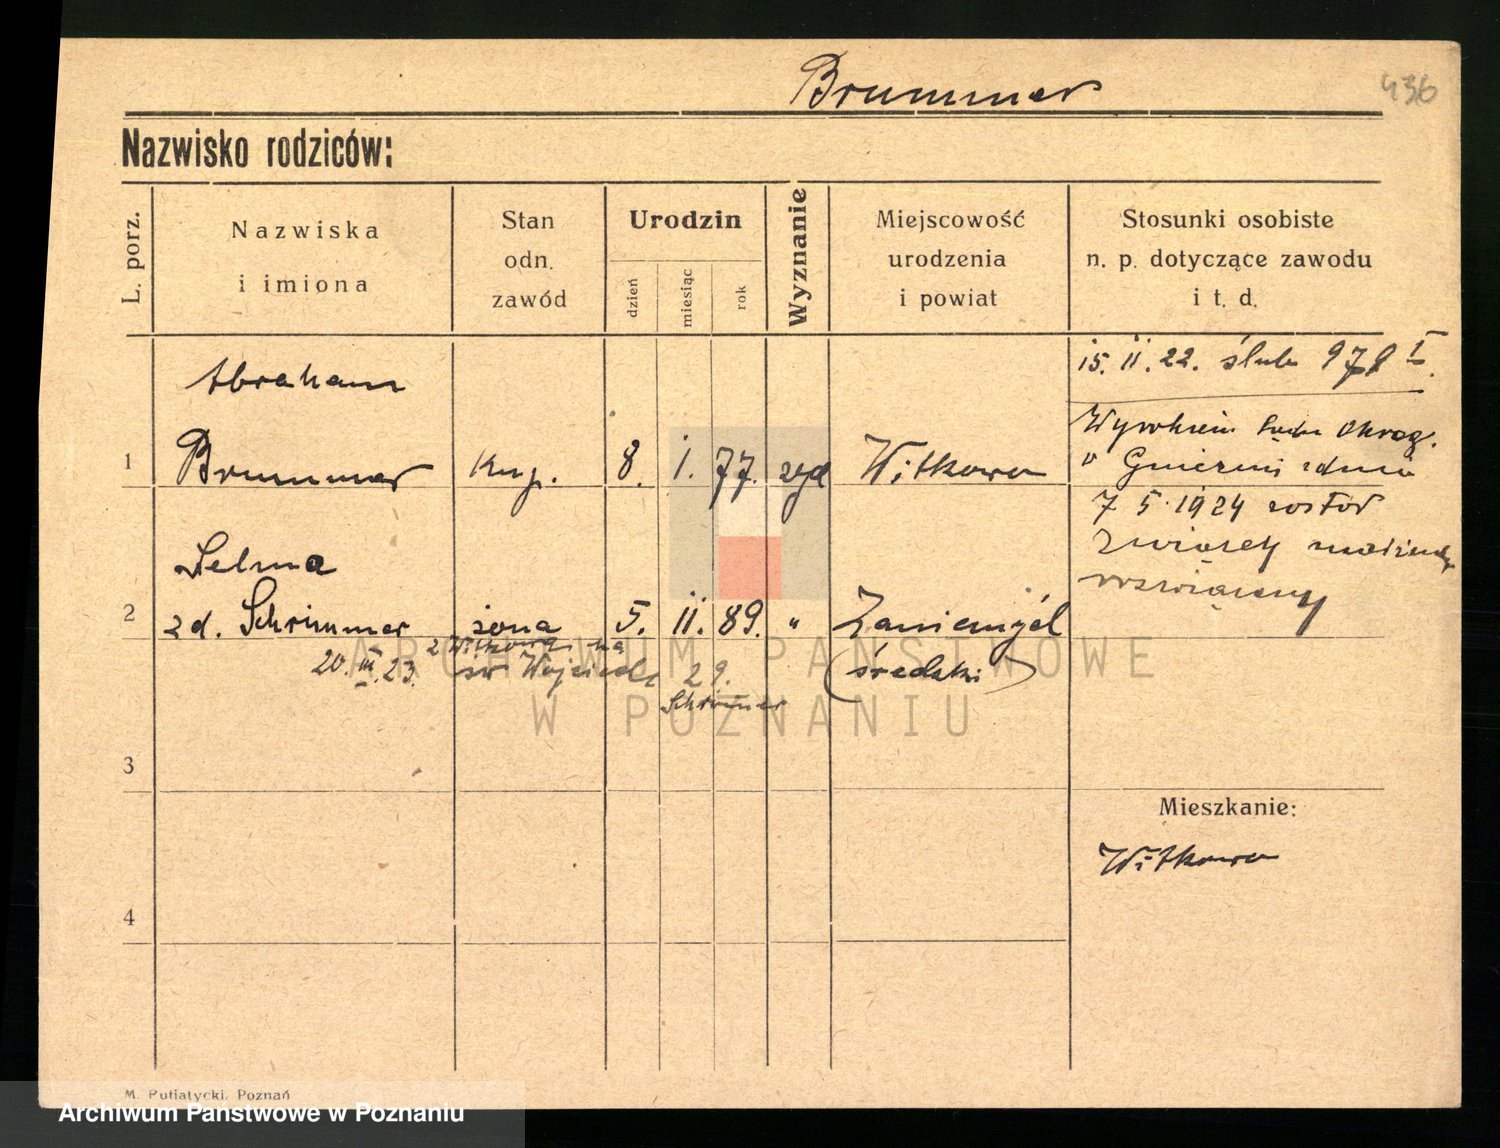 Brummer
436
Nazwisko rodziców:
L. porz.
Nazwiska
i imiona
Stan
odn.
zawód
Urodzin
dzień
miesiąc
rok
Wyznanie
Miejscowość
urodzenia
i powiat
Stosunki osobiste
n. p. dotyczące zawodu
i t. d.
Abraham
1 Brummer Kup. 8. I. 77. Witkowo
Selma
2 zd. Schrimmer żona 5. II. 89. " Zaniemyśl
(średzki)
z Witkowa na
20. III. 23. św Wojciech 29.
Schrimmer
15. II. 22. ślub
Wyrokiem Sądu Okręg.
w Gnieźnie z dnia
7 5. 1924 został
związek
rozwiązany
3
4
Mieszkanie:
Witkowo
M. Putiatycki, Poznań
ARCHIWUM PAŃSTWOWE
W POZNANIU
Archiwum Państwowe w Poznaniu